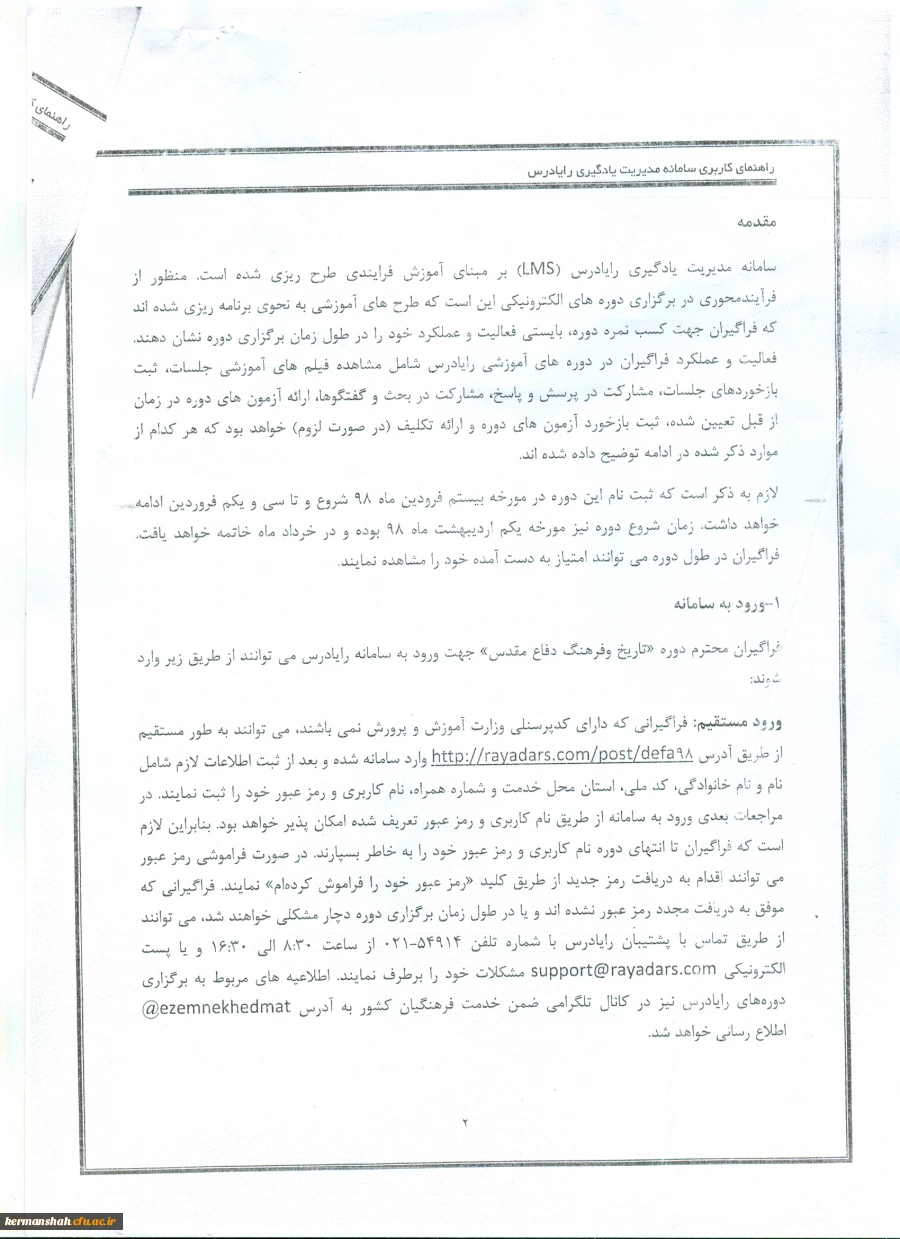 راهنمای
راهنمای کاربری سامانه مدیریت یادگیری رایادرس
مقدمه
سامانه مدیریت یادگیری رایادرس (LMS) بر مبنای آموزش فرایندی طرح ریزی شده است. منظور از
فرآیندمحوری در برگزاری دوره های الکترونیکی این است که طرح های آموزشی به نحوی برنامه ریزی شده اند
که فراگیران جهت کسب نمره دوره، بایستی فعالیت و عملکرد خود را در طول زمان برگزاری دوره نشان دهند.
فعالیت و عملکرد فراگیران در دوره های آموزشی رایادرس شامل مشاهده فیلم های آموزشی جلسات، ثبت
بازخوردهای جلسات، مشارکت در پرسش و پاسخ، مشارکت در بحث و گفتگوها، ارائه آزمون های دوره در زمان
از قبل تعیین شده، ثبت بازخورد آزمون های دوره و ارائه تکلیف (در صورت لزوم) خواهد بود که هر کدام از
موارد ذکر شده در ادامه توضیح داده شده اند.
لازم به ذکر است که ثبت نام این دوره در مورخه بیستم فرودین ماه ۹۸ شروع و تا سی و یکم فروردین ادامه
خواهد داشت. زمان شروع دوره نیز مورخه یکم اردیبهشت ماه ۹۸ بوده و در خرداد ماه خاتمه خواهد یافت.
فراگیران در طول دوره می توانند امتیاز به دست آمده خود را مشاهده نمایند.
۱-ورود به سامانه
فراگیران محترم دوره «تاریخ وفرهنگ دفاع مقدس» جهت ورود به سامانه رایادرس می توانند از طریق زیر وارد
شوند:
ورود مستقیم: فراگیرانی که دارای کدپرسنلی وزارت آموزش و پرورش نمی باشند، می توانند به طور مستقیم
از طریق آدرس http://rayadars.com/post/defa۹۸ وارد سامانه شده و بعد از ثبت اطلاعات لازم شامل
نام و نام خانوادگی، کد ملی، استان محل خدمت و شماره همراه، نام کاربری و رمز عبور خود را ثبت نمایند. در
مراجعات بعدی ورود به سامانه از طریق نام کاربری و رمز عبور تعریف شده امکان پذیر خواهد بود. بنابراین لازم
است که فراگیران تا انتهای دوره نام کاربری و رمز عبور خود را به خاطر بسپارند. در صورت فراموشی رمز عبور
می توانند اقدام به دریافت رمز جدید از طریق کلید «رمز عبور خود را فراموش کرده‌ام» نمایند. فراگیرانی که
موفق به دریافت مجدد رمز عبور نشده اند و یا در طول زمان برگزاری دوره دچار مشکلی خواهند شد، می توانند
از طریق تماس با پشتیبان رایادرس با شماره تلفن ۵۴۹۱۴-۰۲۱ از ساعت ۸:۳۰ الی ۱۶:۳۰ و یا پست
الکترونیکی support@rayadars.com مشکلات خود را برطرف نمایند. اطلاعیه های مربوط به برگزاری
دوره‌های رایادرس نیز در کانال تلگرامی ضمن خدمت فرهنگیان کشور به آدرس @ezemnekhedmat
اطلاع رسانی خواهد شد.
۲
kermanshah.cfu.ac.ir